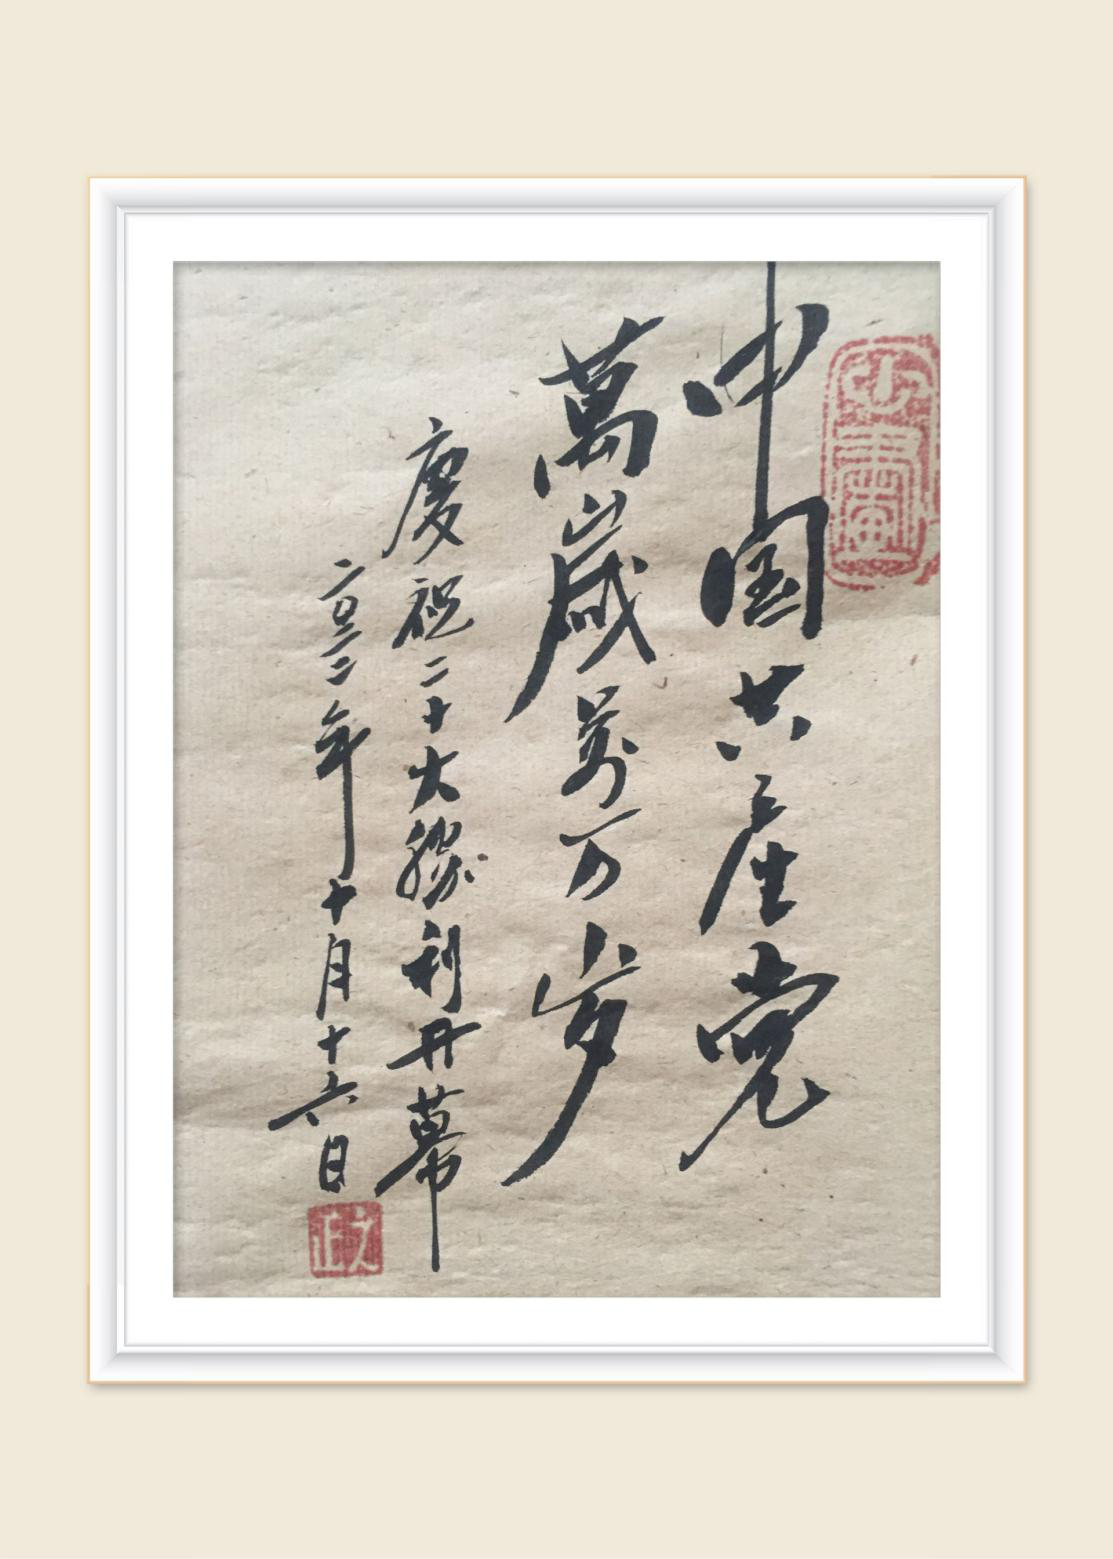 中国共产党
萬歲萬万岁
慶祝二十大勝利开幕
二〇二二年十月十六日
文正